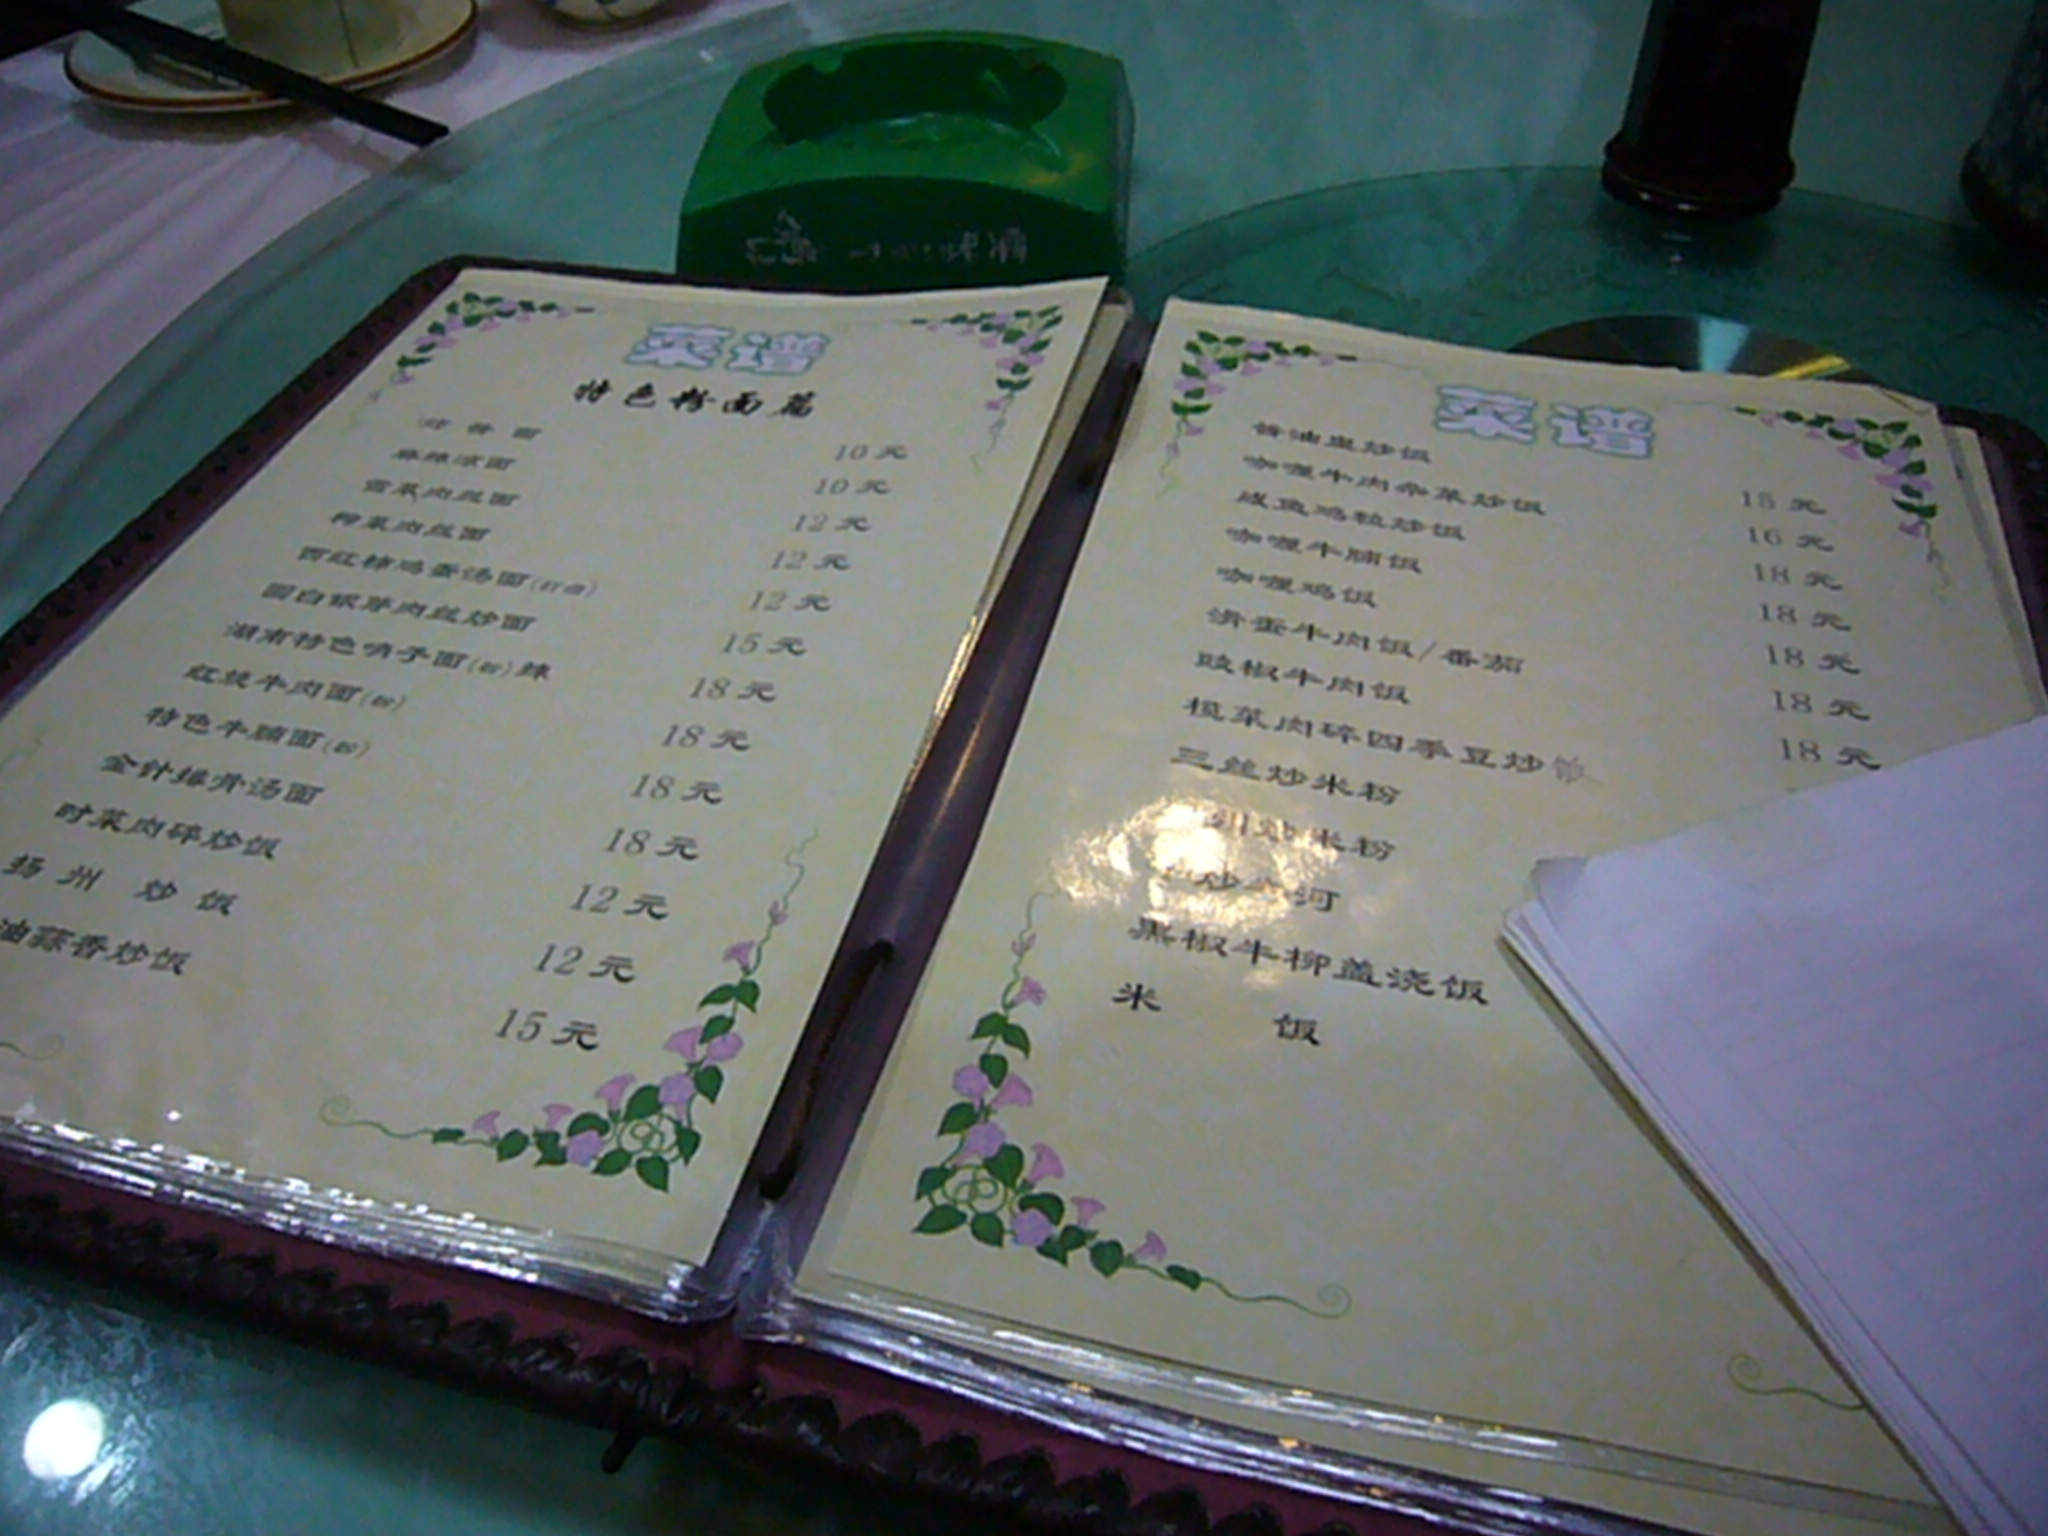 菜谱
特色粉面篇
炸酱面 10元
麻辣凉面 10元
雪菜肉丝面 12元
榨菜肉丝面 12元
西红柿鸡蛋汤面 12元
圆白银芽肉丝炒面 15元
湖南特色哨子面(粉)辣 18元
红枝牛肉面(粉) 18元
特色牛腩面(粉) 18元
金针排骨汤面 18元
时菜肉碎炒饭 12元
扬州炒饭 12元
油蒜香炒饭 15元
菜谱
酱油皇炒饭 15元
咖喱牛肉杂菜炒饭 16元
咸鱼鸡粒炒饭 18元
咖喱牛腩饭 18元
咖喱鸡饭 18元
滑蛋牛肉饭/番茄 18元
豉椒牛肉饭 18元
榄菜肉碎四季豆炒饭
三丝炒米粉
炒米粉
炒牛河
黑椒牛柳盖浇饭
米饭